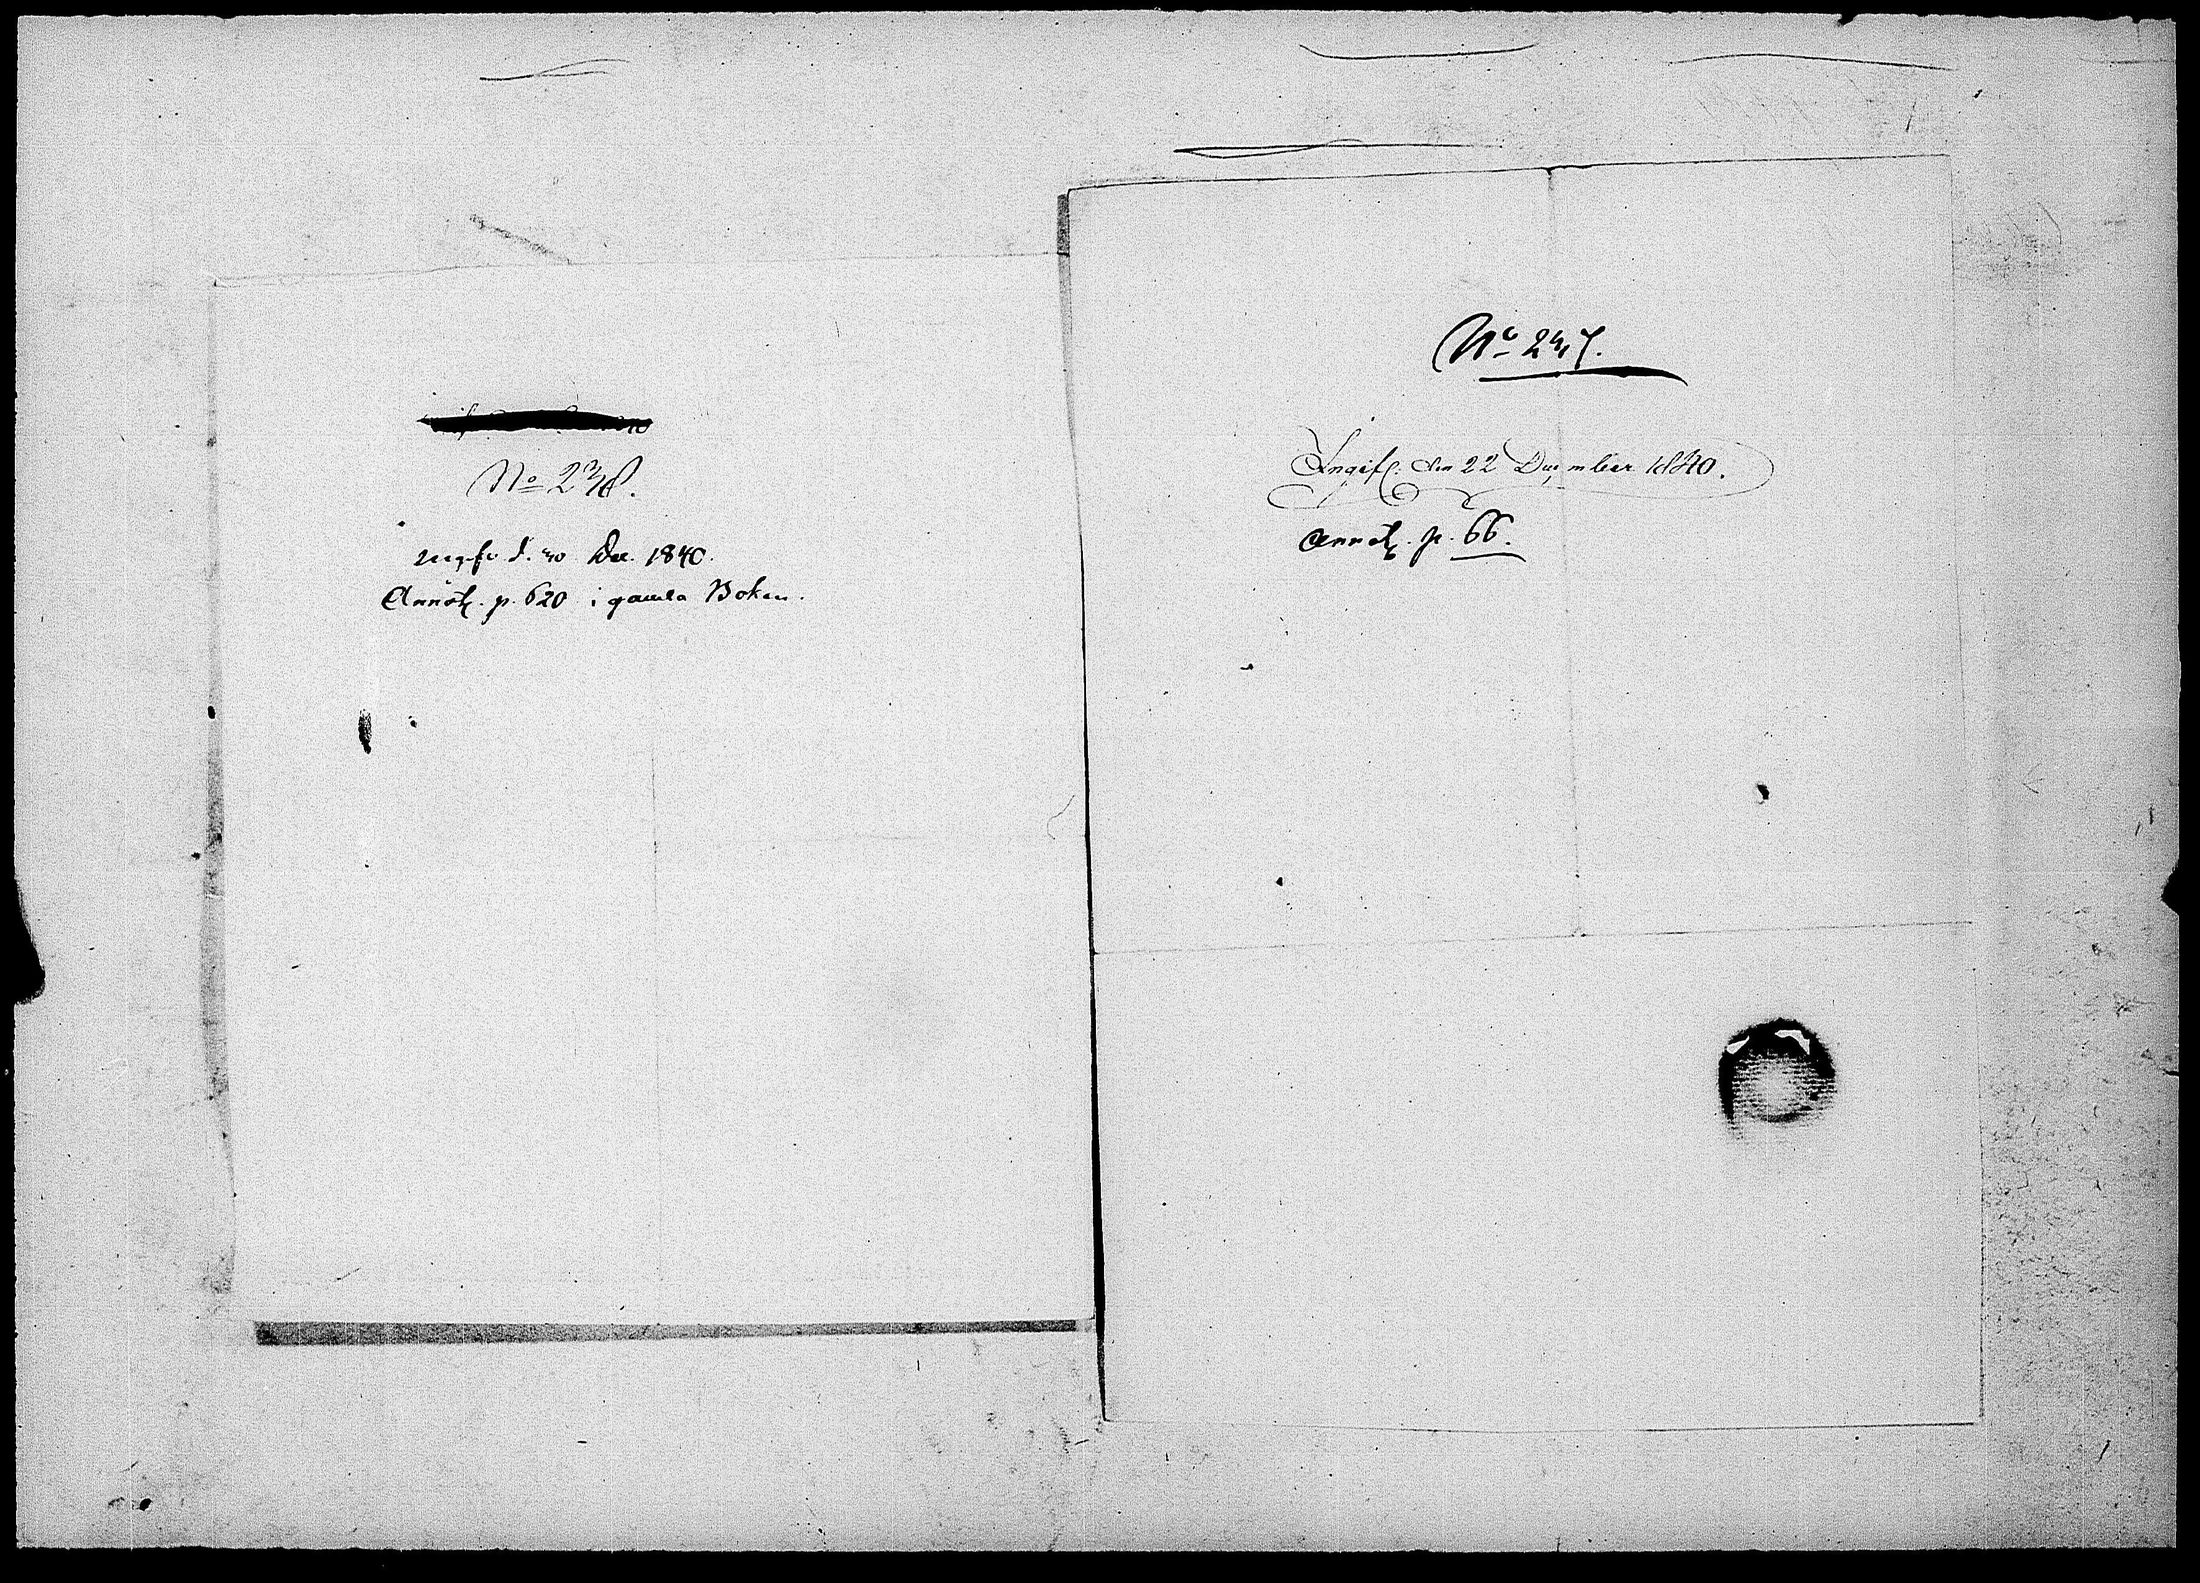 No 238.
ingifv. d. 30 Dec. 1840.
Annot. p. 620 i gamla Boken.
No 237.
Ingifv. den 22 December 1840.
Annot. p. 66.